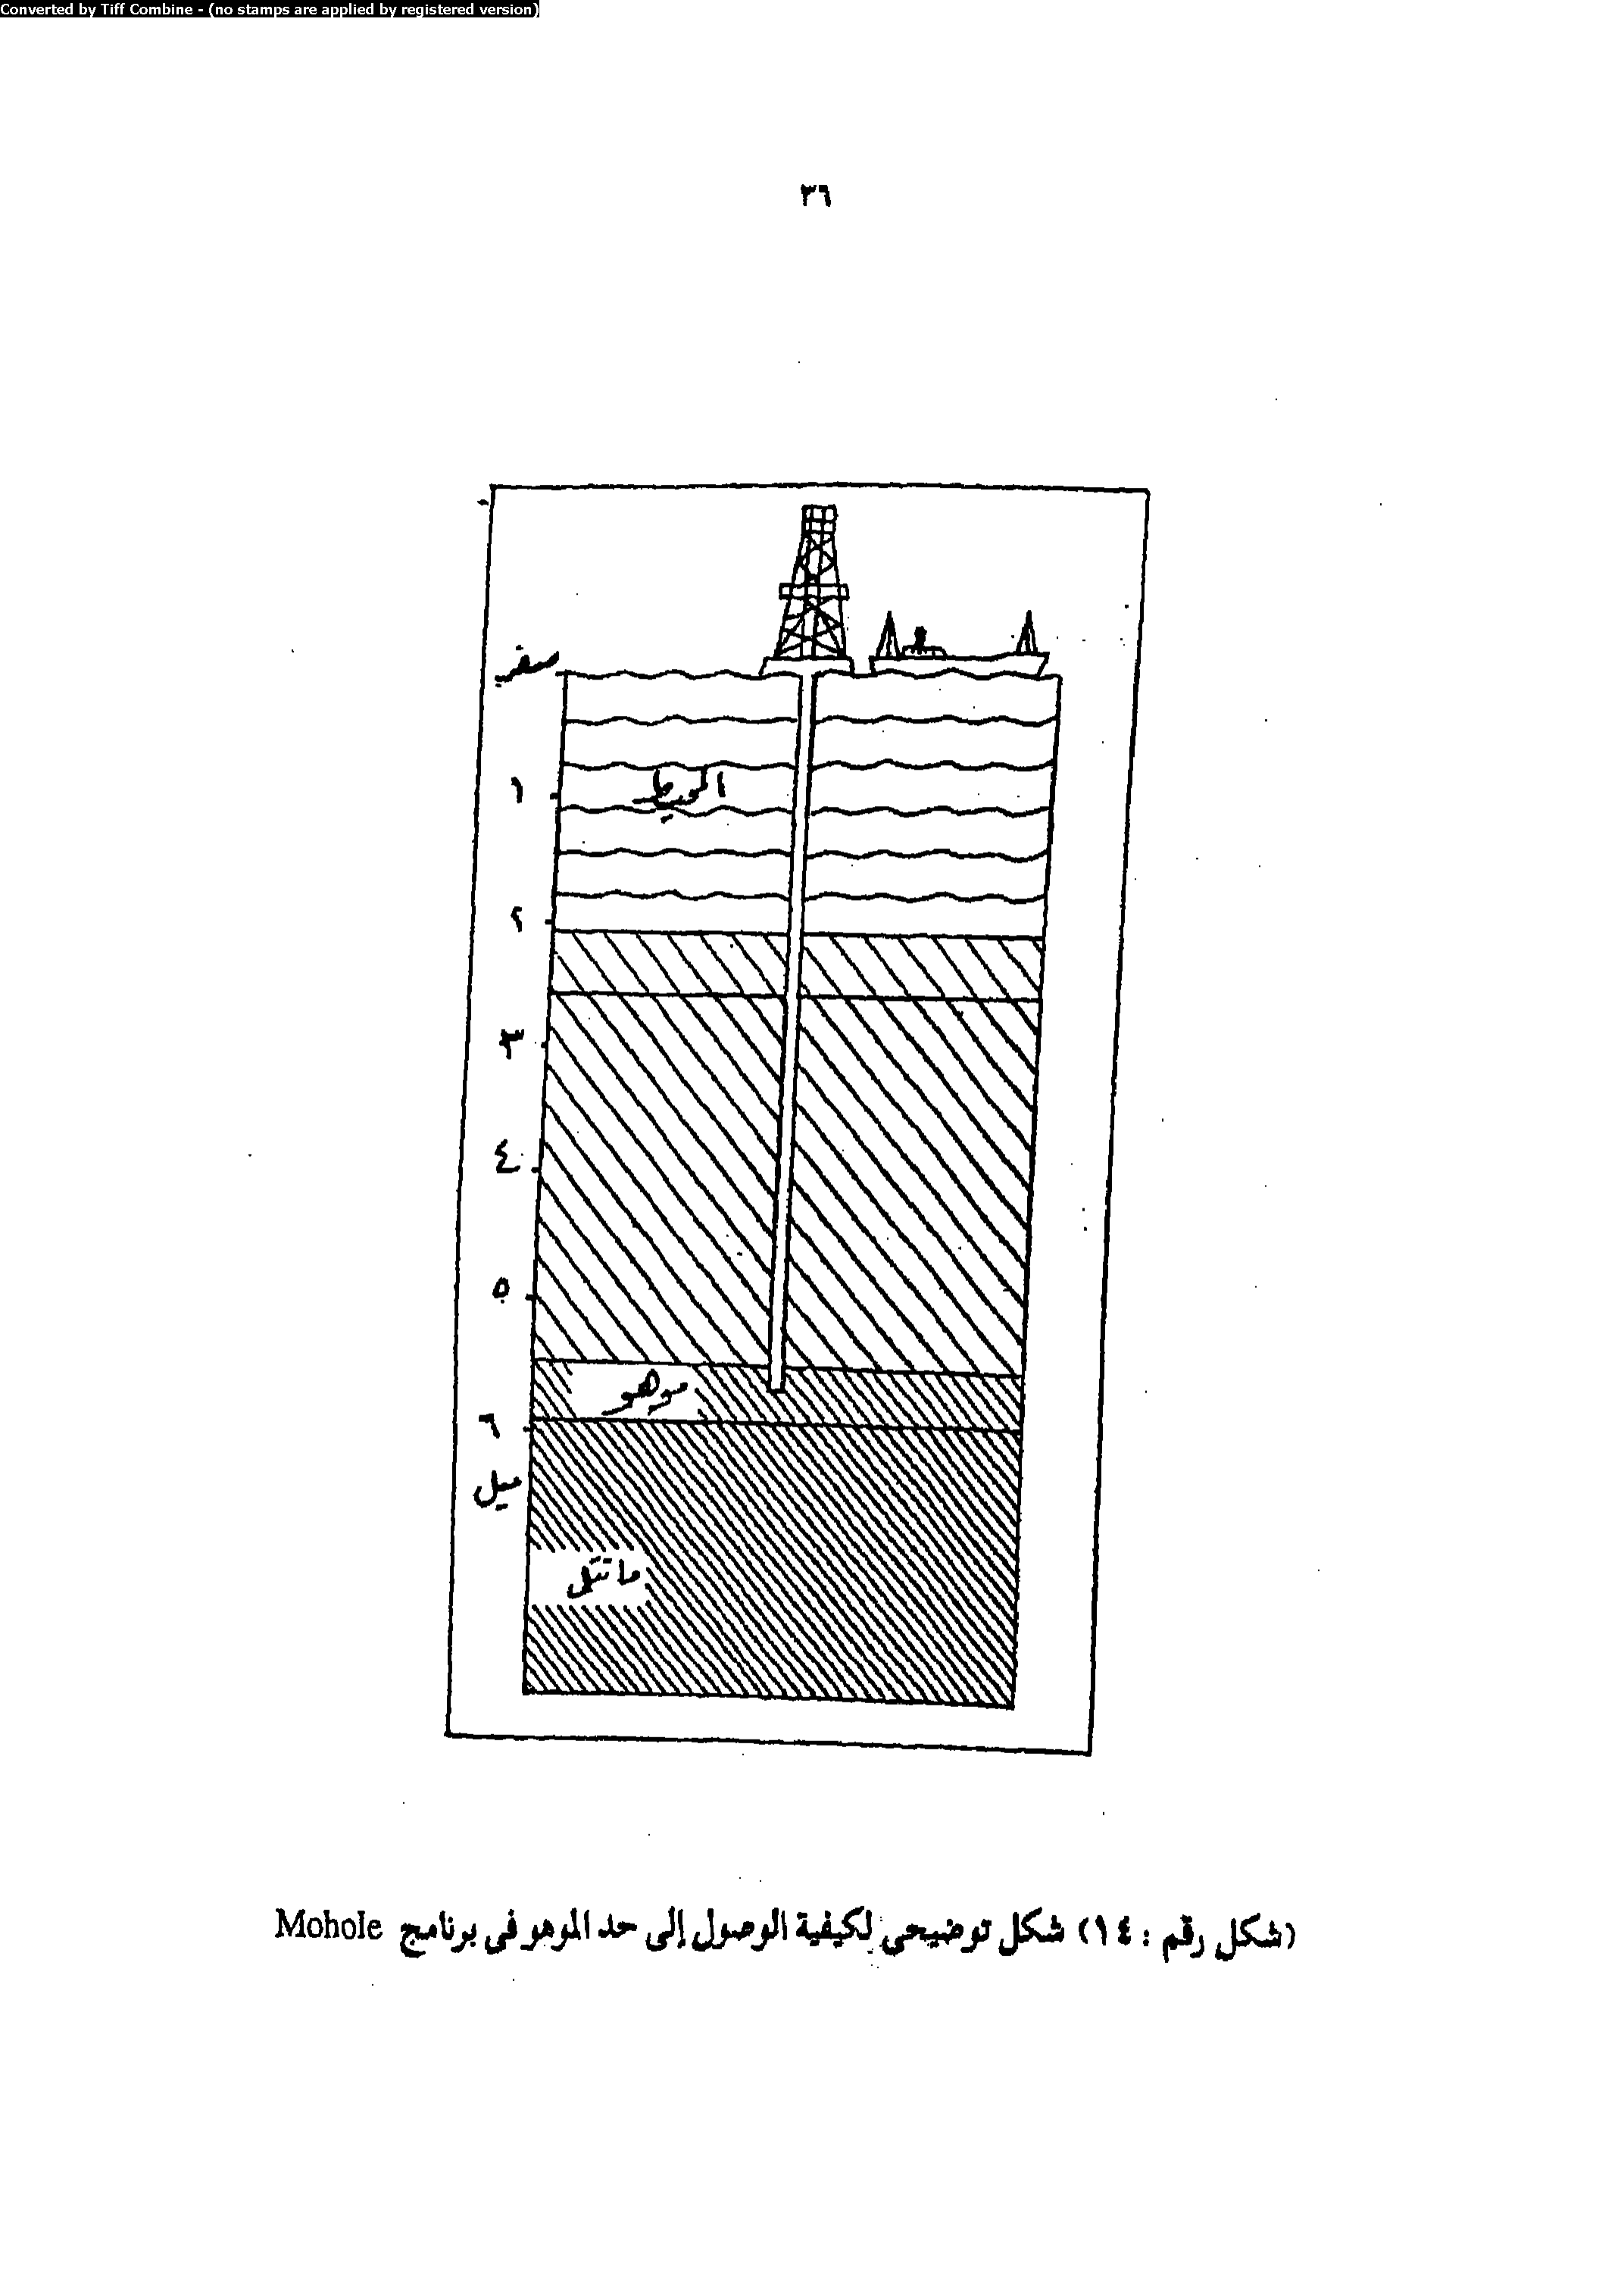 Converted by Tiff Combine - (no stamps are applied by registered version)
٣٦
صفر
١
المحيط
٢
٣
٤
٥
موهو
٦
ميل
مانتل
(شكل رقم : ١٤) شكل توضيحى لكيفية الوصول إلى حد الموهو فى برنامج Mohole